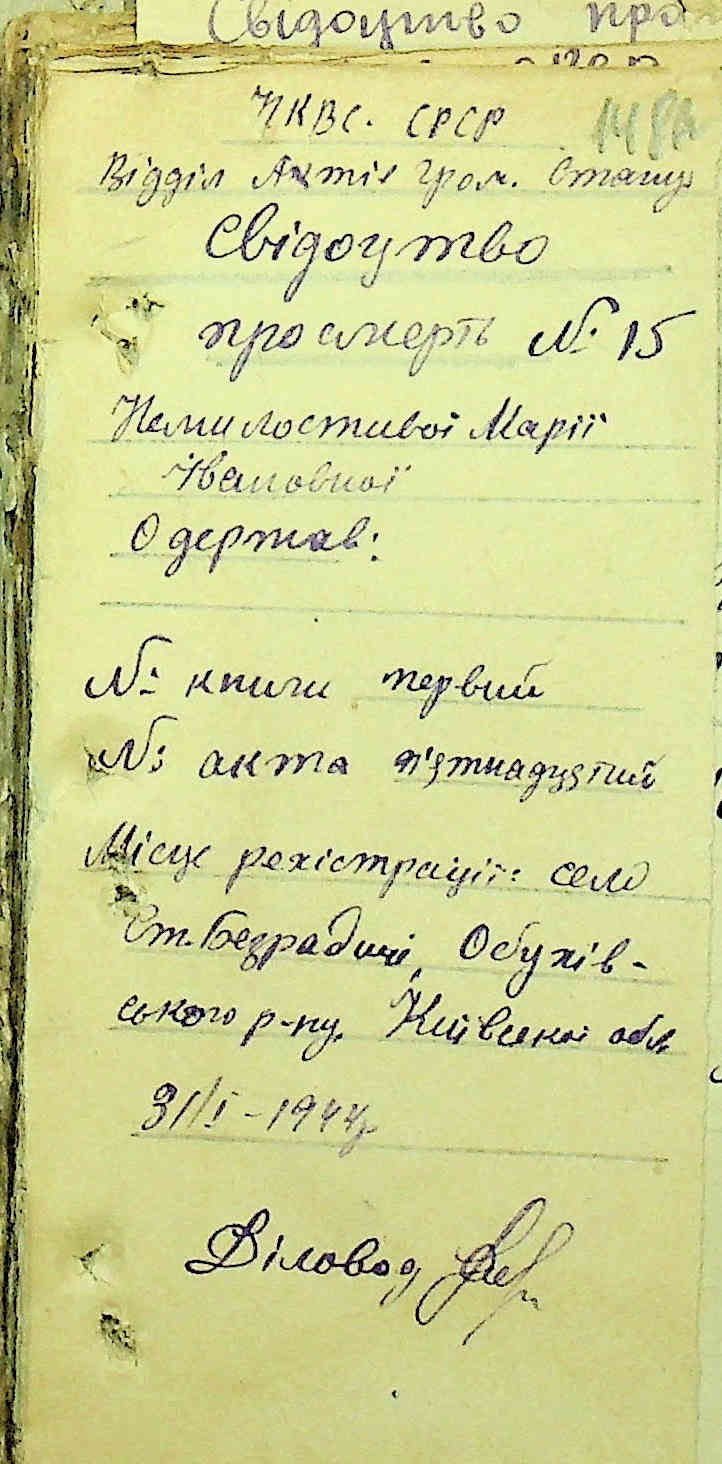 Свідоцтво про
НКВС. СРСР
Відділ Актів Гром. Стану
Свідоцтво
про смерть № 15
Немилостивої Марії
Івановної
Одержав:
№ книги первий
№ акта п'ятнадцятий
Місце регістрації: село
Ст. Безрадичі, Обухів-
ського р-ну, Київської обл
31/I - 1944р
Діловод